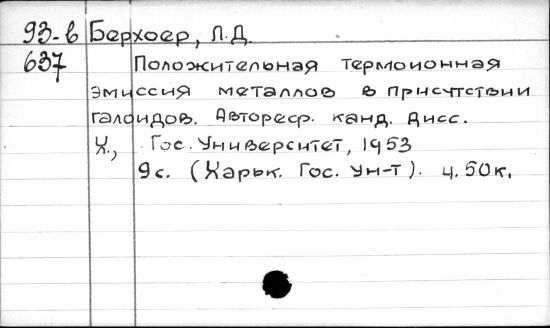 93-в Берхоер, Л.Д.
637 Положительная термоионная
эмиссия металлов в присутствии
галоидов. Автореф. канд. дисс.
Х., Гос. Университет, 1953
9с. (Харьк. Гос. Ун-т). ц. 50к.